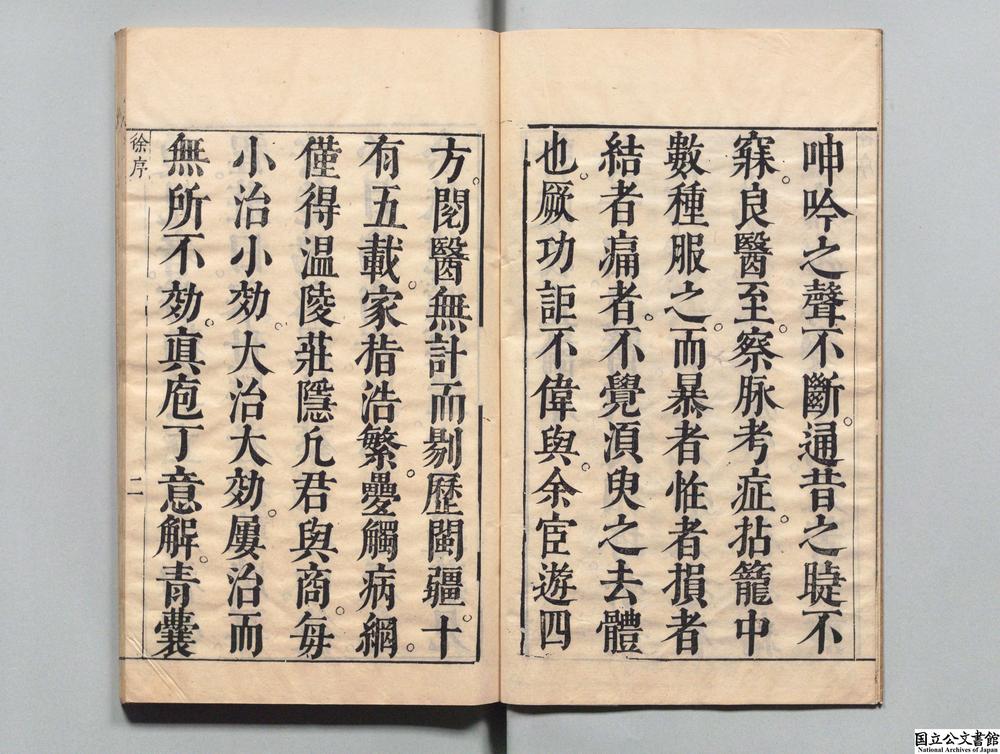 呻吟之聲不斷。通昔之睫不
寐。良醫至。察脉考症。拈籠中
數種服之。而暴者恠者損者
結者痛者。不覺湏臾之去體
也。厥功詎不偉與。余宦遊四
方。閱醫無計。而剔歷閩疆。十
有五載。家㨖浩繁。㬪觸病網。
僅得溫陵莊隱凢君與商。每
小治小効。大治大効。屢治而
無所不効。真庖丁意解。青囊
徐序
二
国立公文書館
National Archives of Japan